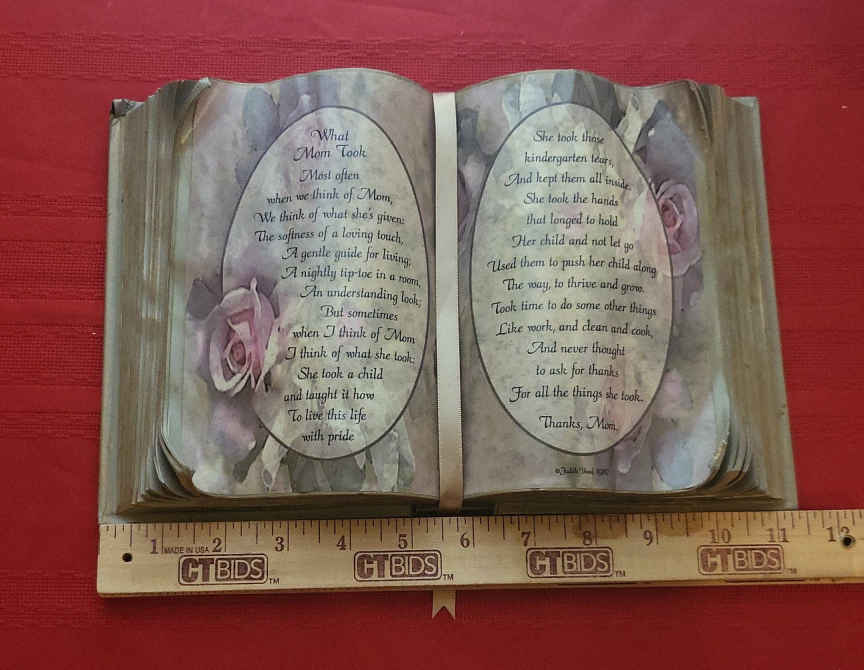 What
Mom Took
Most often
when we think of Mom,
We think of what she's given:
The softness of a loving touch,
A gentle guide for living;
A nightly tip-toe in a room,
An understanding look;
But sometimes
when I think of Mom
I think of what she took:
She took a child
and taught it how
To live this life
with pride
She took those
kindergarten tears,
And kept them all inside.
She took the hands
that longed to hold
Her child and not let go
Used them to push her child along
The way, to thrive and grow.
Took time to do some other things
Like work, and clean and cook,
And never thought
to ask for thanks
For all the things she took.
Thanks, Mom.
1 2 3 4 5 6 7 8 9 10 11 12
MADE IN USA
CTBIDS TM CTBIDS TM CTBIDS TM CTBIDS TM